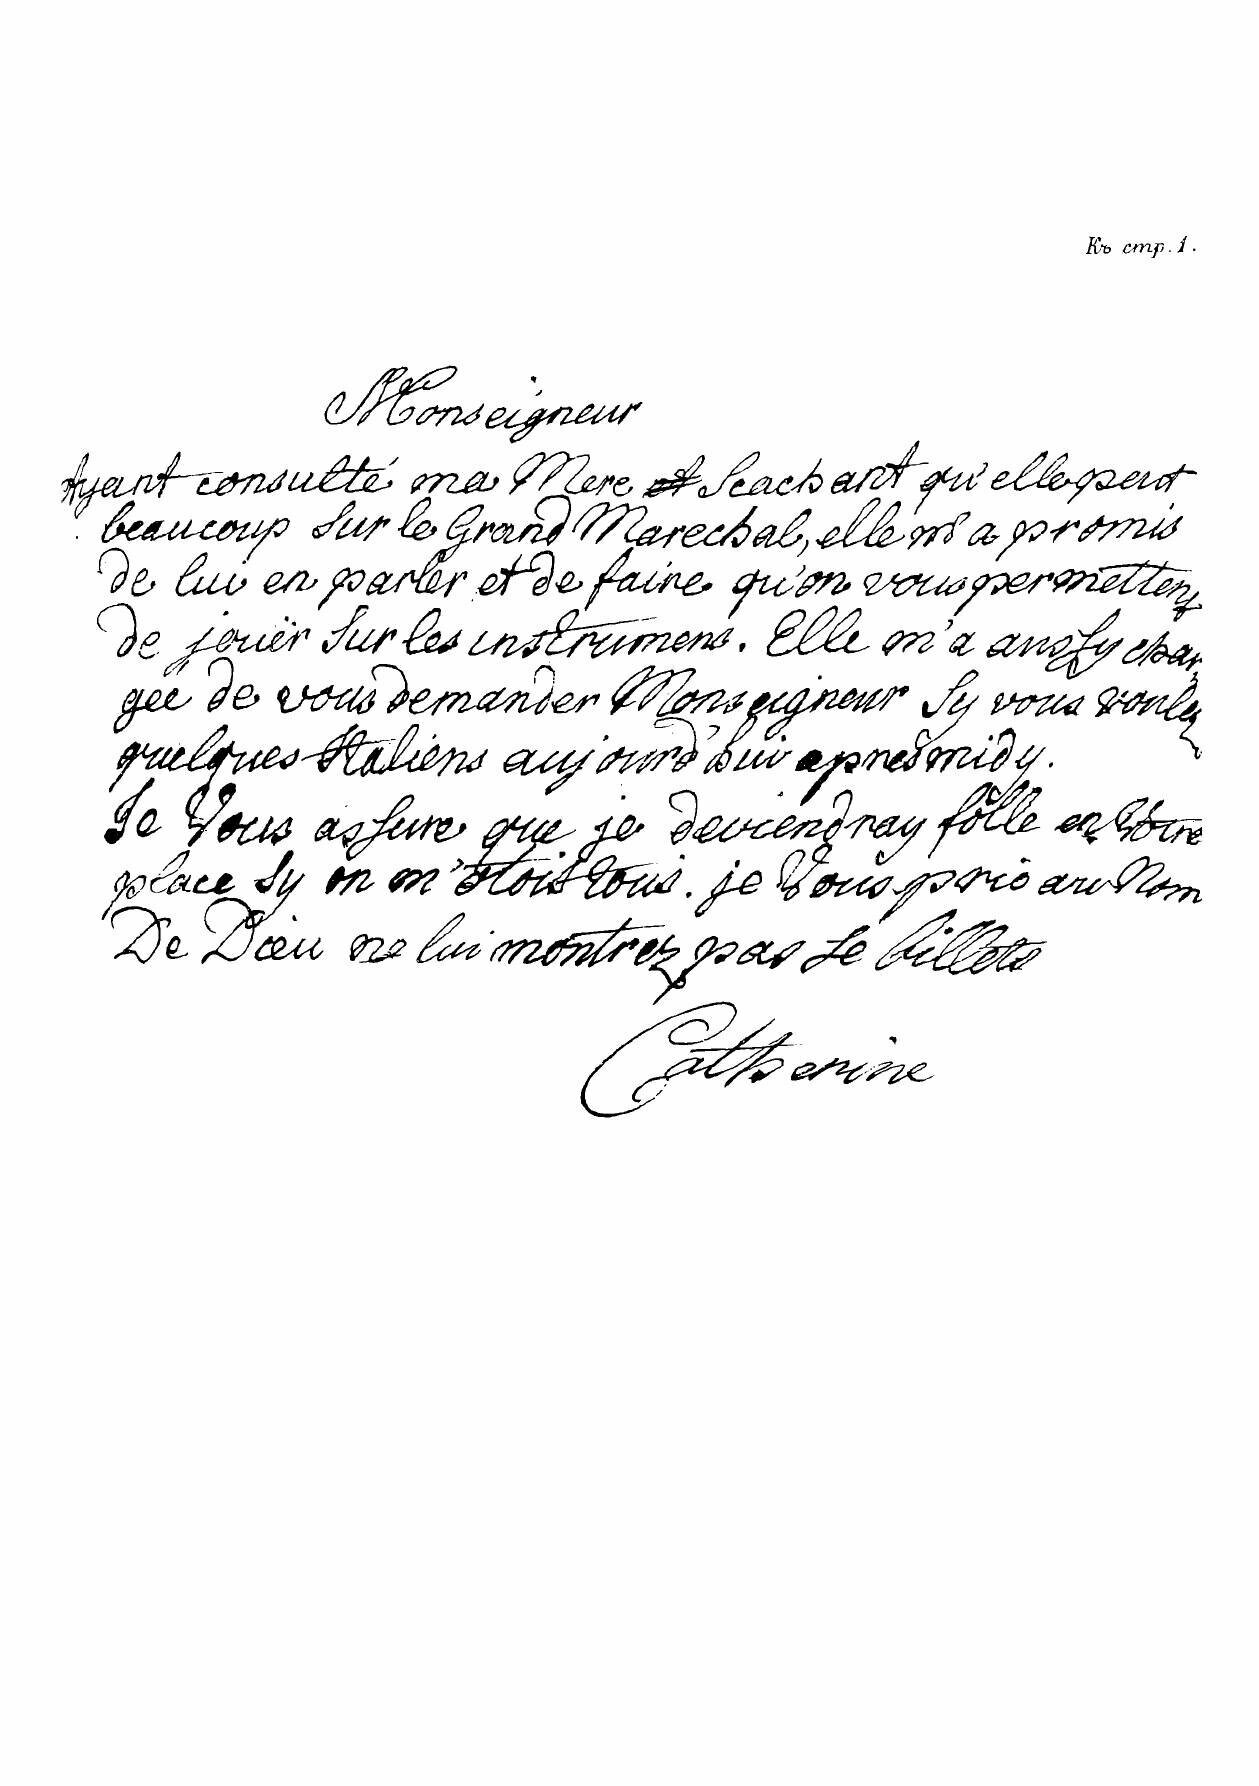 Къ стр. 1.
Monseigneur
Ayant consulté ma Mere et Scachant qu'elle peut
beaucoup sur le Grand Marechal, elle m'a promis
de lui en parler et de faire qu'on vous permettent
de jouër sur les instrumens. Elle m'a aussy char-
geé de vous demander Monseigneur sy vous voulez
quelques Italiens aujourd'hui apresmidy.
Je Vous assure que je deviendray folle en Votre
place sy on m'otoit tous. je Vous prie au Nom
De Dieu ne lui montrez pas se billets
Catherine